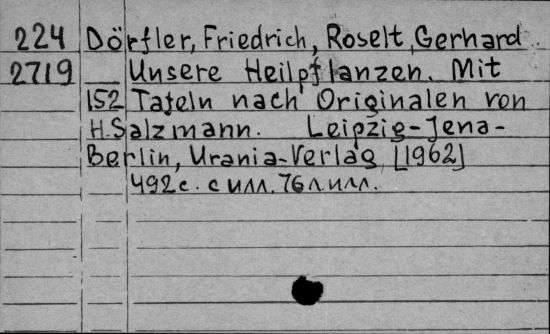 224 Dörfler, Friedrich, Roselt, Gerhard
2719 Unsere Heilpflanzen. Mit
152 Tafeln nach Originalen von
H. Salzmann. Leipzig-Jena-
Berlin, Urania-Verlag [1962]
492 с. с илл. 76 л. илл.